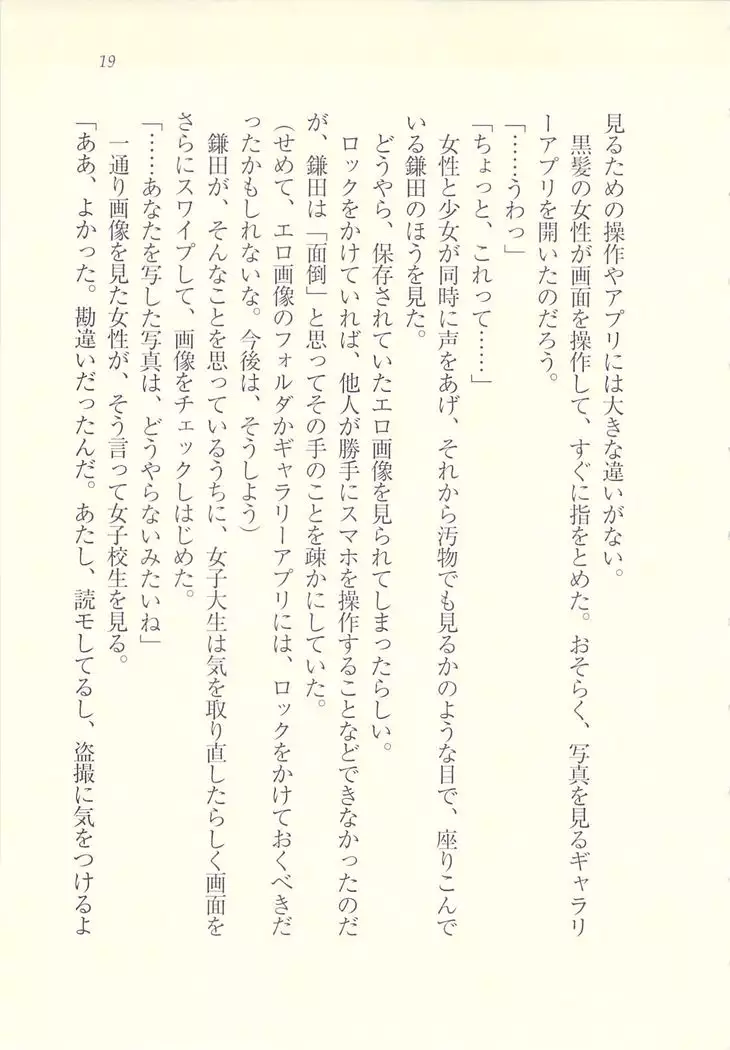 19
見るための操作やアプリには大きな違いがない。
　黒髪の女性が画面を操作して、すぐに指をとめた。おそらく、写真を見るギャラリ
ーアプリを開いたのだろう。
「……うわっ」
「ちょっと、これって……」
　女性と少女が同時に声をあげ、それから汚物でも見るかのような目で、座りこんで
いる鎌田のほうを見た。
　どうやら、保存されていたエロ画像を見られてしまったらしい。
　ロックをかけていれば、他人が勝手にスマホを操作することなどできなかったのだ
が、鎌田は「面倒」と思ってその手のことを疎かにしていた。
（せめて、エロ画像のフォルダかギャラリーアプリには、ロックをかけておくべきだ
ったかもしれないな。今後は、そうしよう）
　鎌田が、そんなことを思っているうちに、女子大生は気を取り直したらしく画面を
さらにスワイプして、画像をチェックしはじめた。
「……あなたを写した写真は、どうやらないみたいね」
　一通り画像を見た女性が、そう言って女子校生を見る。
「ああ、よかった。勘違いだったんだ。あたし、読モしてるし、盗撮に気をつけるよ